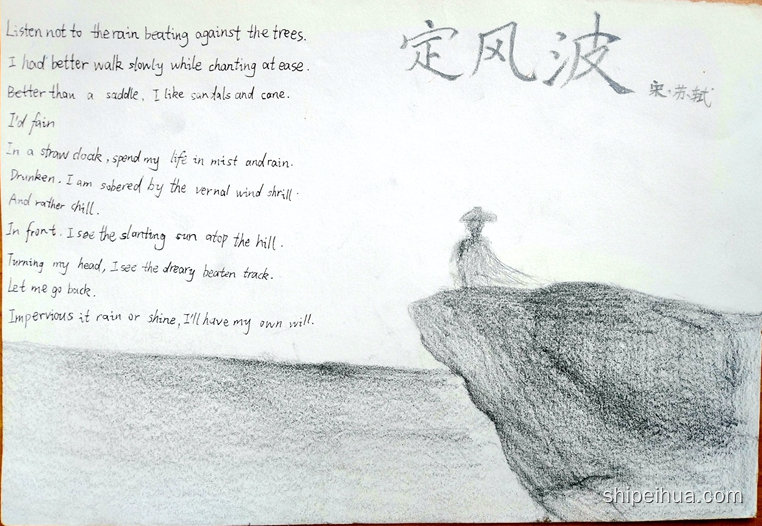 定风波
宋·苏轼
Listen not to the rain beating against the trees.
I had better walk slowly while chanting at ease.
Better than a saddle, I like sandals and cane.
I'd fain
In a straw cloak, spend my life in mist and rain.
Drunken. I am sobered by the vernal wind shrill.
And rather chill.
In front. I see the slanting sun atop the hill.
Turning my head, I see the dreary beaten track.
Let me go back.
Impervious it rain or shine, I'll have my own will.
shipeihua.com